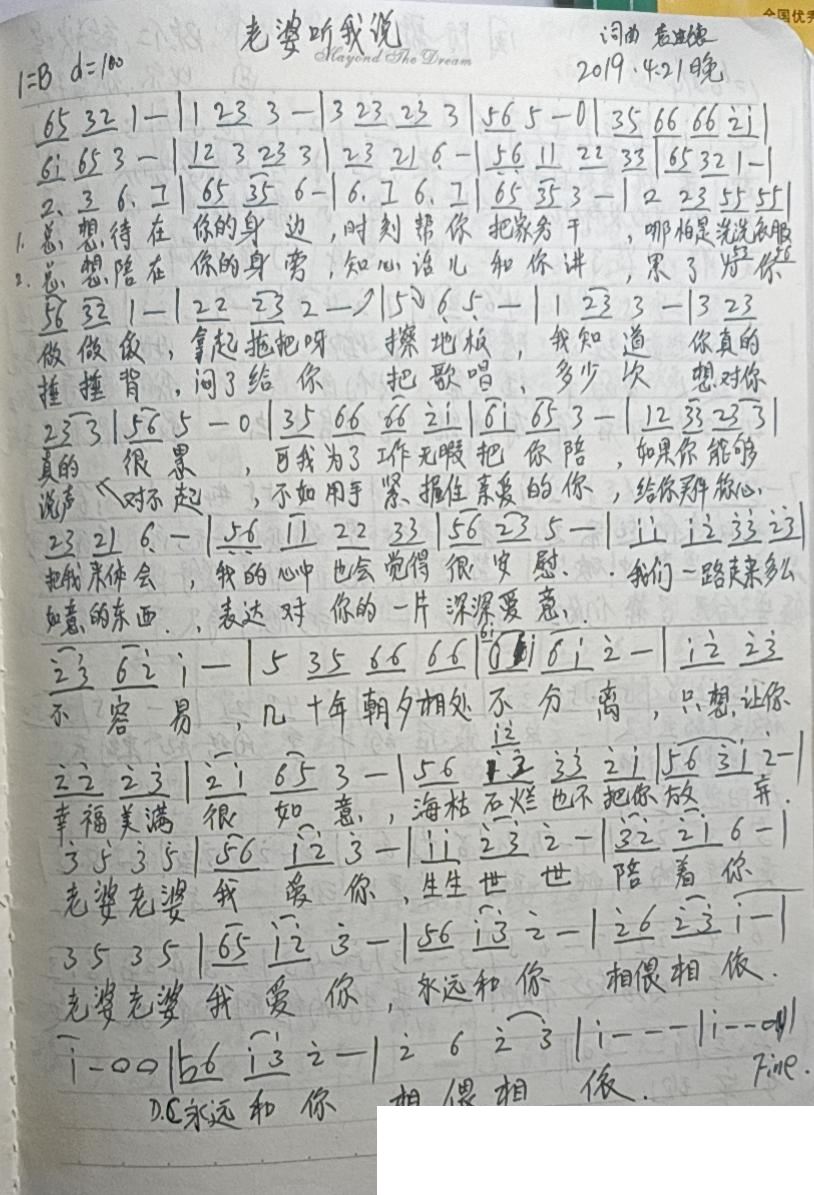 全国优
老婆听我说
Mayond The Dream
词曲
2019.4.21晚
1=B d=100
65 32 1 - | 1 23 3 - | 3 23 23 3 | 56 5 - 0 | 35 66 66 2̇i̇ |
6i̇ 65 3 - | 12 3 23 3 | 23 21 6̣ - | 5̣6̣ 11 22 33 | 65 32 1 - |
2. 3 6. 1 | 65 35 6 - | 6. 1 6. 1 | 65 35 3 - | 2 23 55 55 |
1. 总想待在 你的身边,时刻帮你 把家务干 ,哪怕是洗洗衣服
2. 总想陪在 你的身旁,知心话儿 和你讲 ,累了为你
56 32 1 - | 22 23 2 - | 5 6̣ 5̣ - | 1 23 3 - | 3 23
做做饭,拿起拖把呀 擦地板,我知道 你真的
捶捶背,闷了给你 把歌唱,多少次 想对你
23 3 | 56 5 - 0 | 35 66 66 2̇i̇ | 6i̇ 65 3 - | 12 33 23 3 |
真的 很累 ,可我为了工作无暇把你陪,如果你能够
说声 对不起 ,不如用手紧握住亲爱的你,给你买件称心
23 21 6̣ - | 5̣6̣ 11 22 33 | 56 23 5 - | i̇i̇ i̇2̇ 3̇3̇ 2̇3̇ |
把我来体会,我的心中也会觉得很安慰.我们一路走来多么
如意的东西.,表达对你的一片深深爱意.
2̇3̇ 62̇ i̇ - | 5 35 66 66 | 6i̇ 6i̇ 2̇ - | i̇2̇ 2̇3̇
不容易,几十年朝夕相处不分离,只想让你
i̇2̇
2̇2̇ 2̇3̇ | 2̇i̇ 65 3 - | 56 3̇3̇ 2̇i̇ | 56 3̇i̇ 2̇ - |
幸福美满 很如意,海枯石烂也不把你放弃.
3̇ 5 3̇ 5 | 56 i̇2̇ 3̇ - | i̇i̇ 2̇3̇ 2̇ - | 3̇2̇ 2̇i̇ 6 - |
老婆老婆 我爱你,生生世世 陪着你
3 5 3 5 | 65 i̇2̇ 3̇ - | 56 i̇3̇ 2̇ - | 2̇6 2̇3̇ i̇ - |
老婆老婆 我爱你,永远和你 相偎相依.
i̇ - 0 0 | 56 i̇3̇ 2̇ - | 2̇ 6 2̇ 3̇ | i̇ - - - | i̇ - - 0 |
D.C 永远和你 相偎相依. Fine.